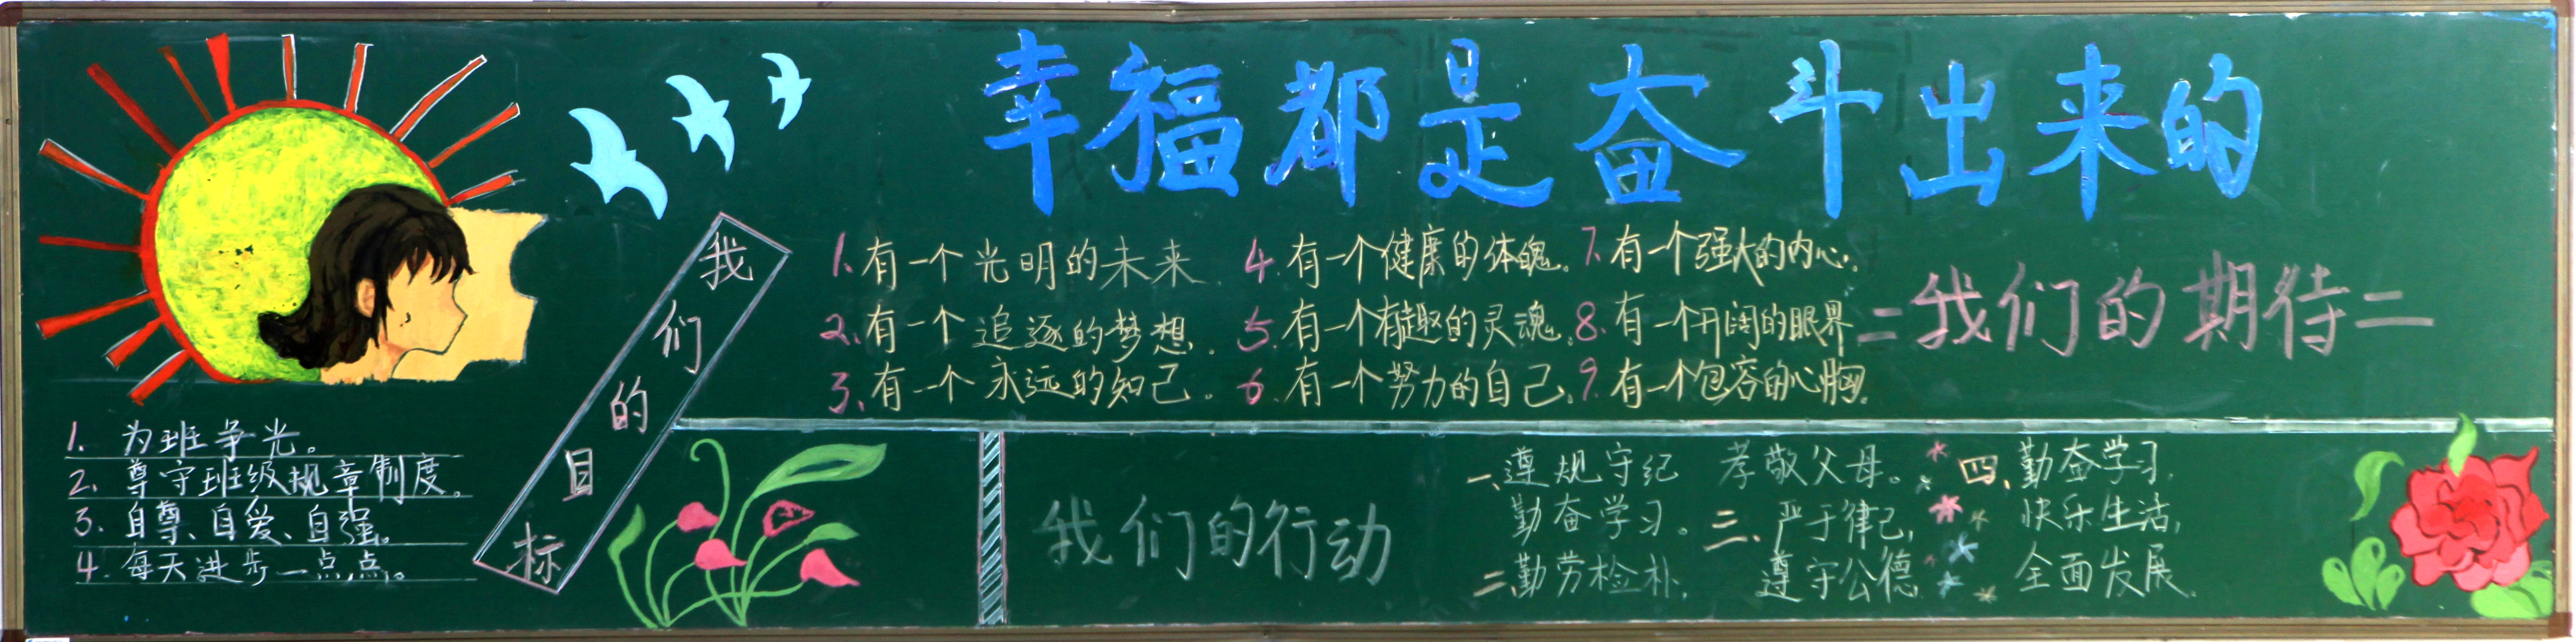 幸福都是奋斗出来的
我们的目标
1. 为班争光。
2. 尊守班级规章制度。
3. 自尊、自爱、自强。
4. 每天进步一点点。
1. 有一个光明的未来
2. 有一个追逐的梦想.
3. 有一个永远的知己。
4. 有一个健康的体魄.
5. 有一个有趣的灵魂.
6. 有一个努力的自己.
7. 有一个强大的内心.
8. 有一个开阔的眼界
9. 有一个包容的心胸.
=我们的期待=
我们的行动
一、遵规守纪
勤奋学习。
二、勤劳检朴,
孝敬父母。
三、严于律己,
遵守公德
四、勤奋学习,
快乐生活,
全面发展.